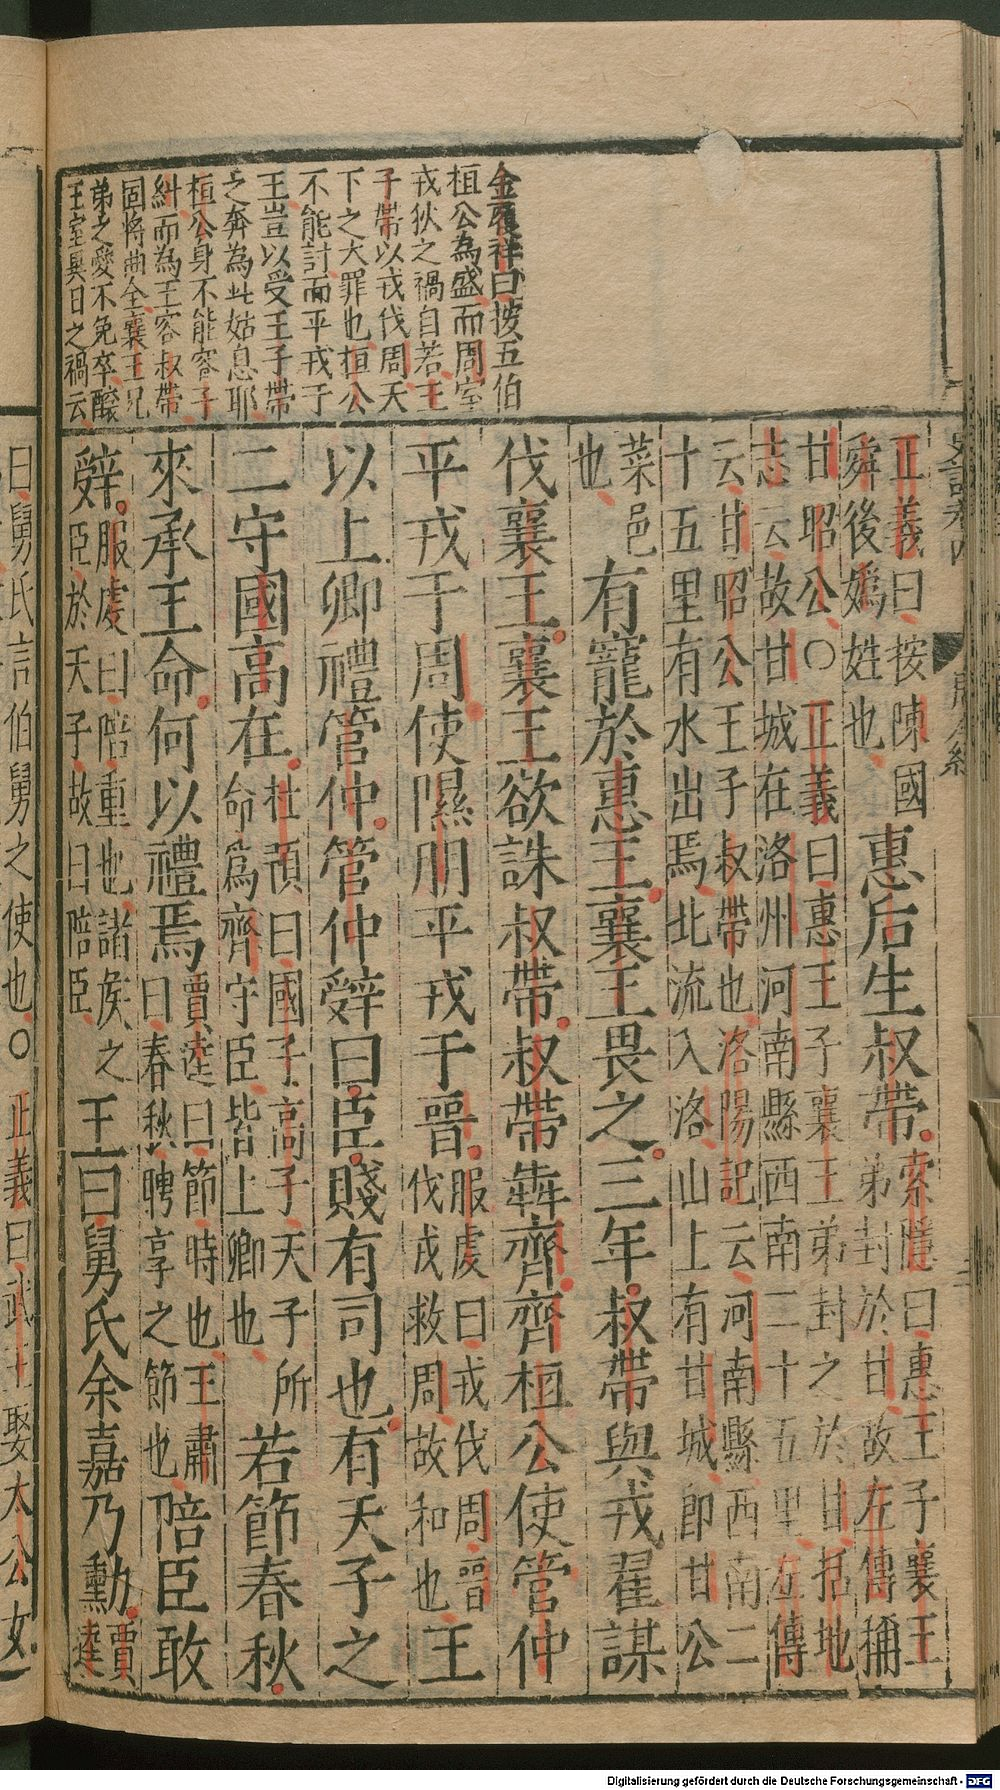 金履祥曰按五伯
桓公為盛而周室
戎狄之禍自若王
子帶以戎伐周天
下之大罪也桓公
不能討而平戎于
王豈以受王子帶
之奔為此姑息耶
桓公身不能容子
糾而為王容叔帶
固將曲全襄王兄
弟之愛不免卒釀
王室異日之禍云
正義曰按陳國
舜後媯姓也
惠后生叔帶
索隱曰惠王子襄王
弟封於甘故左傳稱
甘昭公○正義曰惠王子襄王弟封之於甘括地
志云故甘城在洛州河南縣西南二十五里左傳
云甘昭公王子叔帶也洛陽記云河南縣西南二
十五里有水出焉北流入洛山上有甘城即甘公
菜邑
也
有寵於惠王襄王畏之三年叔帶與戎翟謀
伐襄王襄王欲誅叔帶叔帶犇齊齊桓公使管仲
平戎于周使隰朋平戎于晉
服虔曰戎伐周晉
伐戎救周故和也
王
以上卿禮管仲管仲辭曰臣賤有司也有天子之
二守國高在
杜預曰國子高子天子所
命爲齊守臣皆上卿也
若節春秋
來承王命何以禮焉
賈逵曰節時也王肅
曰春秋聘享之節也
陪臣敢
辭
服虔曰陪重也諸侯之
臣於天子故曰陪臣
王曰舅氏余嘉乃勳
賈
逵
曰舅氏言伯舅之使也○正義曰武王娶太公女
Digitalisierung gefördert durch die Deutsche Forschungsgemeinschaft - DFG